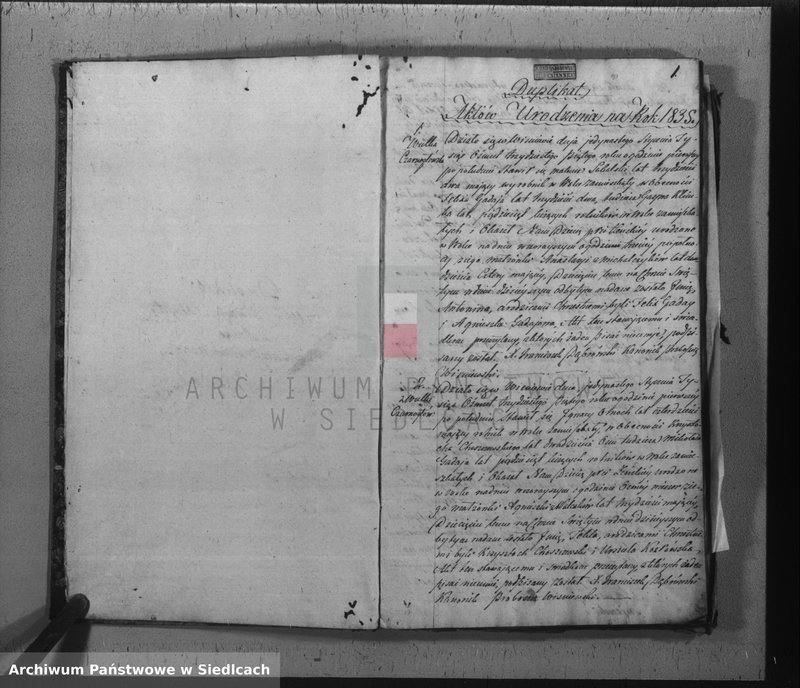 1
Duplikat
Aktów Urodzenia na Rok 1835.
1.
Wulka
Czarnogłow
Działo się w Wiśniewie dnia jedynastego Stycznia Ty-
siąc Ośmset Trzydziestego Piątego roku o godzinie pierwszej
po południu Stawił się Mateusz lat trzydzieści
dwa mający wyrobnik w Wulce zamieszkały w obecności
lat trzydzieści dwa, tudzież
lat pięćdziesiąt liczących rolników w Wulce zamiesz-
kałych i Okazał Nam Dziecię płci Żeńskiej urodzone
w Wulce na dniu wczorajszym o godzinie trzeciej po połud-
niu z jego małżonki Anastazyi z Michalczyków lat dwa-
dzieścia Cztery mającej, Dziecięciu temu na Chrzcie Świę-
tym w dniu dzisiejszym odbytym nadane zostało Imię
Antonina, a rodzicami Chrzestnemi byli
i Agnieszka Gadajowa, Akt ten stawającemu i świa-
dkom przeczytany z których żaden pisać nieumie, podpi-
sany został. X. Franciszek Dąbrowski Kanonik Proboszcz
Wiśniewski.
2.
Wulka
Czarnogłow
Działo się w Wiśniewie dnia jedynastego Stycznia Ty-
siąc Ośmset Trzydziestego Piątego roku o godzinie pierwszej
po południu Stawił się Ignacy lat czterdzieści
mający rolnik w Wulce zamieszkały w Obecności Krysz-
tofa lat dwadzieścia Ośm tudzież Michała
Gadaja lat pięćdziesiąt liczących rolników w Wulce zamie-
szkałych i Okazał Nam Dziecię płci Żeńskiej urodzone
w Wulce na dniu wczorajszym o godzinie Ósmej wieczór z Je-
go małżonki Agnieszki lat trzydzieści mającej,
Dziecięciu temu na Chrzcie Świętym w dniu dzisiejszym od-
bytym nadane zostało Imię Tekla, a rodzicami Chrzestne-
mi byli Krysztof i Urszula
Akt ten stawającemu i świadkom przeczytany z których żaden
pisać nieumie, podpisany został. X. Franciszek Dąbrowski
Kanonik Proboszcz Wiśniewski.
ARCHIWUM PAŃSTWOWE
W SIEDLCACH
Archiwum Państwowe w Siedlcach